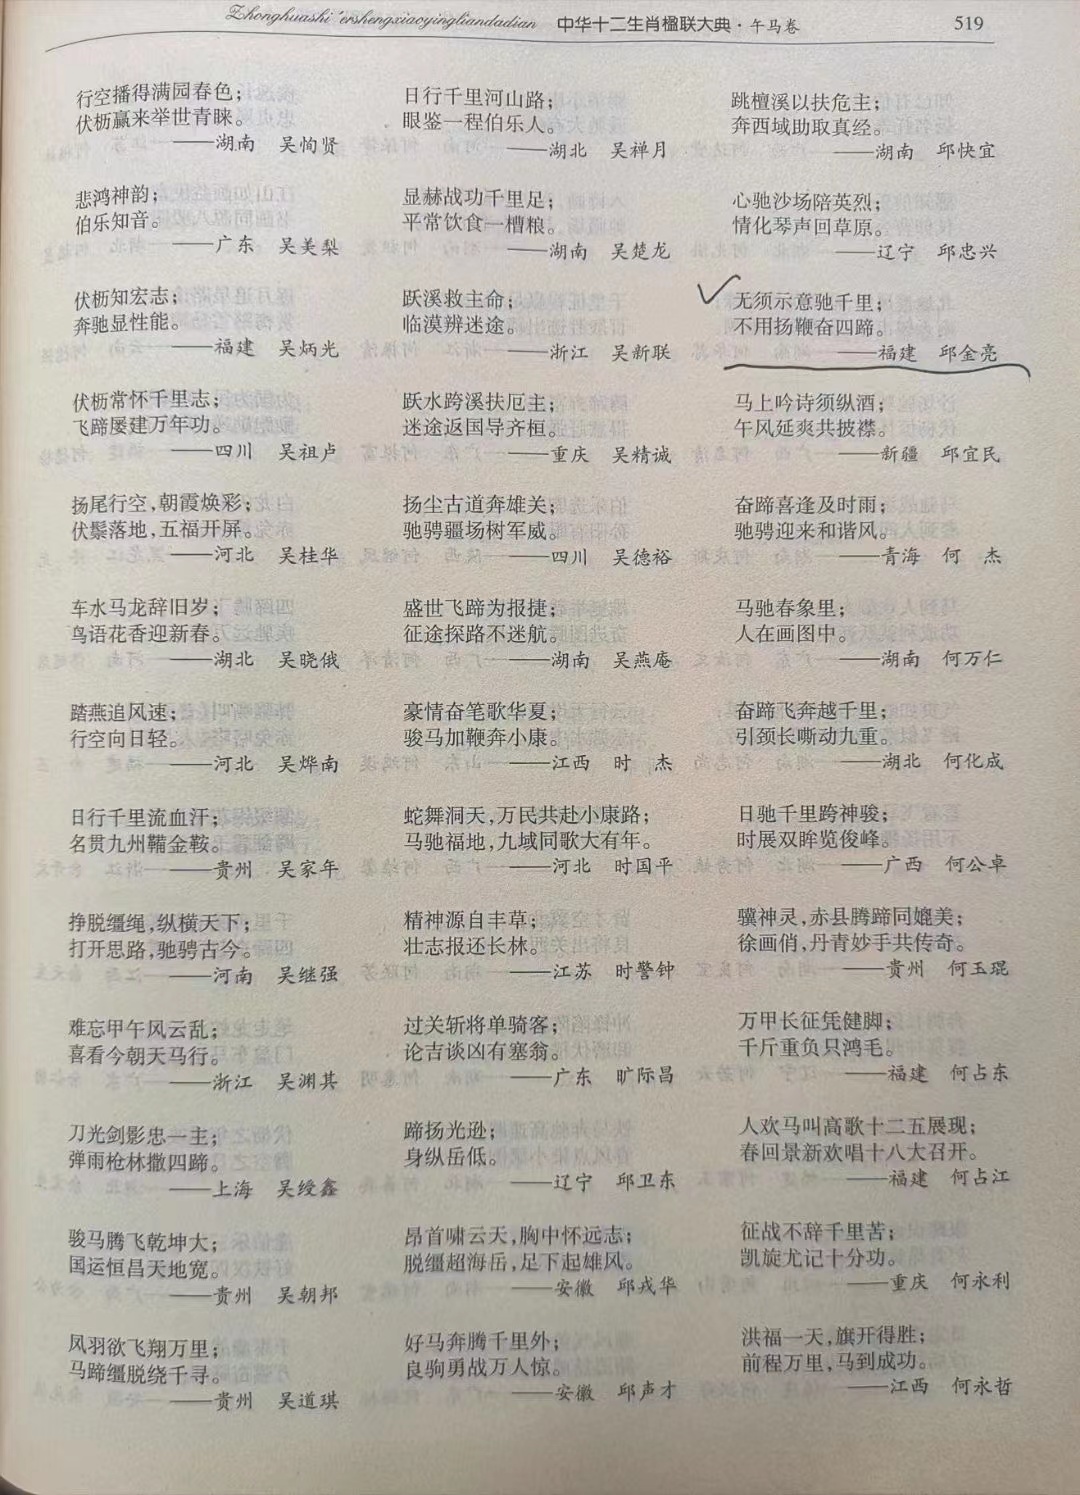 Zhonghuashi'ershengxiaoyingliandadian 中华十二生肖楹联大典·午马卷 519
行空播得满园春色;
伏枥赢来举世青睐。
——湖南 吴恂贤
悲鸿神韵;
伯乐知音。
——广东 吴美梨
伏枥知宏志;
奔驰显性能。
——福建 吴炳光
伏枥常怀千里志;
飞蹄屡建万年功。
——四川 吴祖卢
扬尾行空,朝霞焕彩;
伏鬃落地,五福开屏。
——河北 吴桂华
车水马龙辞旧岁;
鸟语花香迎新春。
——湖北 吴晓俄
踏燕追风速;
行空向日轻。
——河北 吴烨南
日行千里流血汗;
名贯九州鞴金鞍。
——贵州 吴家年
挣脱缰绳,纵横天下;
打开思路,驰骋古今。
——河南 吴继强
难忘甲午风云乱;
喜看今朝天马行。
——浙江 吴渊其
刀光剑影忠一主;
弹雨枪林撒四蹄。
——上海 吴绶鑫
骏马腾飞乾坤大;
国运恒昌天地宽。
——贵州 吴朝邦
凤羽欲飞翔万里;
马蹄缰脱绕千寻。
——贵州 吴道琪
日行千里河山路;
眼鉴一程伯乐人。
——湖北 吴禅月
显赫战功千里足;
平常饮食一槽粮。
——湖南 吴楚龙
跃溪救主命;
临漠辨迷途。
——浙江 吴新联
跃水跨溪扶厄主;
迷途返国导齐桓。
——重庆 吴精诚
扬尘古道奔雄关;
驰骋疆场树军威。
——四川 吴德裕
盛世飞蹄为报捷;
征途探路不迷航。
——湖南 吴燕庵
豪情奋笔歌华夏;
骏马加鞭奔小康。
——江西 时 杰
蛇舞洞天,万民共赴小康路;
马驰福地,九域同歌大有年。
——河北 时国平
精神源自丰草;
壮志报还长林。
——江苏 时警钟
过关斩将单骑客;
论吉谈凶有塞翁。
——广东 旷际昌
蹄扬光逊;
身纵岳低。
——辽宁 邱卫东
昂首啸云天,胸中怀远志;
脱缰超海岳,足下起雄风。
——安徽 邱戎华
好马奔腾千里外;
良驹勇战万人惊。
——安徽 邱声才
跳檀溪以扶危主;
奔西域助取真经。
——湖南 邱快宜
心驰沙场陪英烈;
情化琴声回草原。
——辽宁 邱忠兴
无须示意驰千里;
不用扬鞭奋四蹄。
——福建 邱金亮
马上吟诗须纵酒;
午风延爽共披襟。
——新疆 邱宜民
奋蹄喜逢及时雨;
驰骋迎来和谐风。
——青海 何 杰
马驰春象里;
人在画图中。
——湖南 何万仁
奋蹄飞奔越千里;
引颈长嘶动九重。
——湖北 何化成
日驰千里跨神骏;
时展双眸览俊峰。
——广西 何公卓
骥神灵,赤县腾蹄同媲美;
徐画俏,丹青妙手共传奇。
——贵州 何玉琨
万甲长征凭健脚;
千斤重负只鸿毛。
——福建 何占东
人欢马叫高歌十二五展现;
春回景新欢唱十八大召开。
——福建 何占江
征战不辞千里苦;
凯旋尤记十分功。
——重庆 何永利
洪福一天,旗开得胜;
前程万里,马到成功。
——江西 何永哲